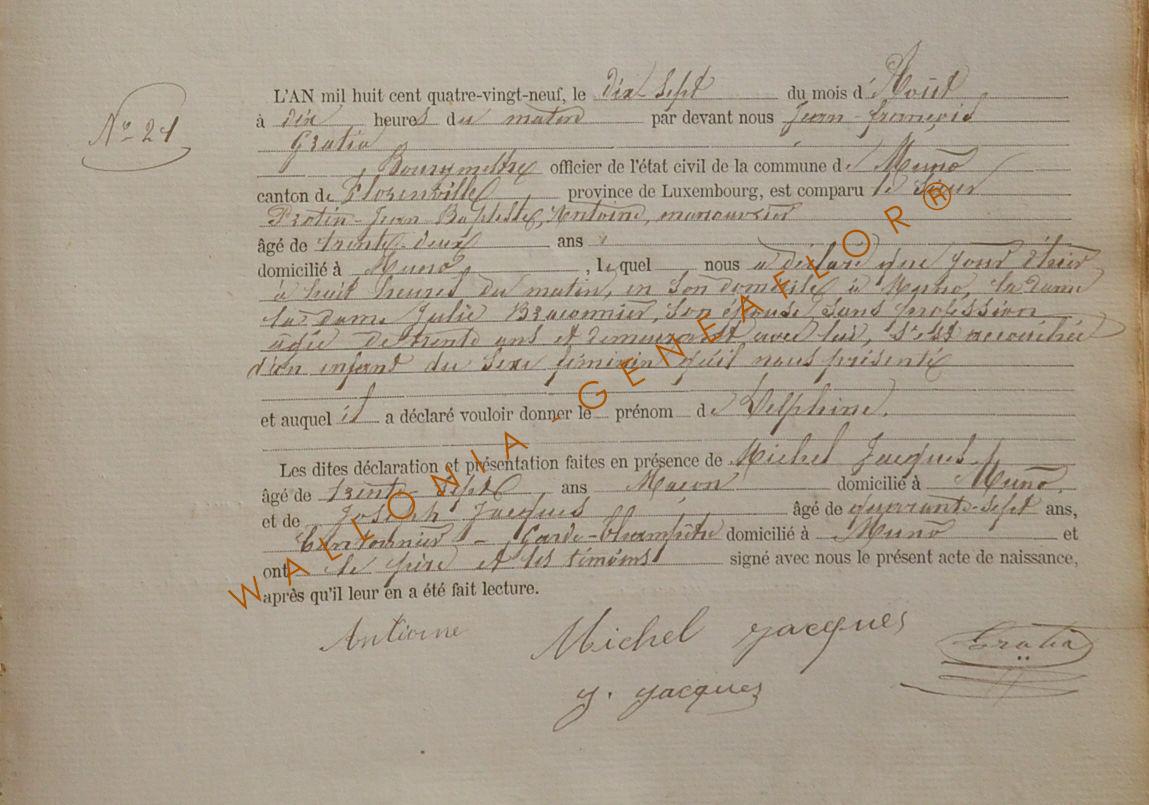 No 21
L'AN mil huit cent quatre-vingt-neuf, le dix Sept du mois d' Août
à dix heures du matin par devant nous Jean-françois
Gratia
Bourgmestre officier de l'état civil de la commune de Muno
canton de Florenville province de Luxembourg, est comparu le Sieur
Protin-Jean Baptiste, Antoine, manouvrier
âgé de trente-deux ans
domicilié à Muno, lequel nous a déclaré que jour d'hier
à huit heures du matin, en son domicile à Muno, la dame
la Dame Julie Braconnier, son épouse, sans profession
agée de trente ans et demeurant avec lui, s'est accouchée
d'un enfant du sexe féminin qu'il nous présente
et auquel il a déclaré vouloir donner le prénom de Delphine.
Les dites déclaration et présentation faites en présence de Michel Jacques
âgé de trente-sept ans Maçon domicilié à Muno,
et de Joseph Jacques âgé de quarante-sept ans,
Cantonnier - Garde-Champêtre domicilié à Muno et
ont le père et les témoins signé avec nous le présent acte de naissance,
après qu'il leur en a été fait lecture.
Antoine Michel Jacques Gratia
J. Jacques
WALLONIA - GENEAFLOR®